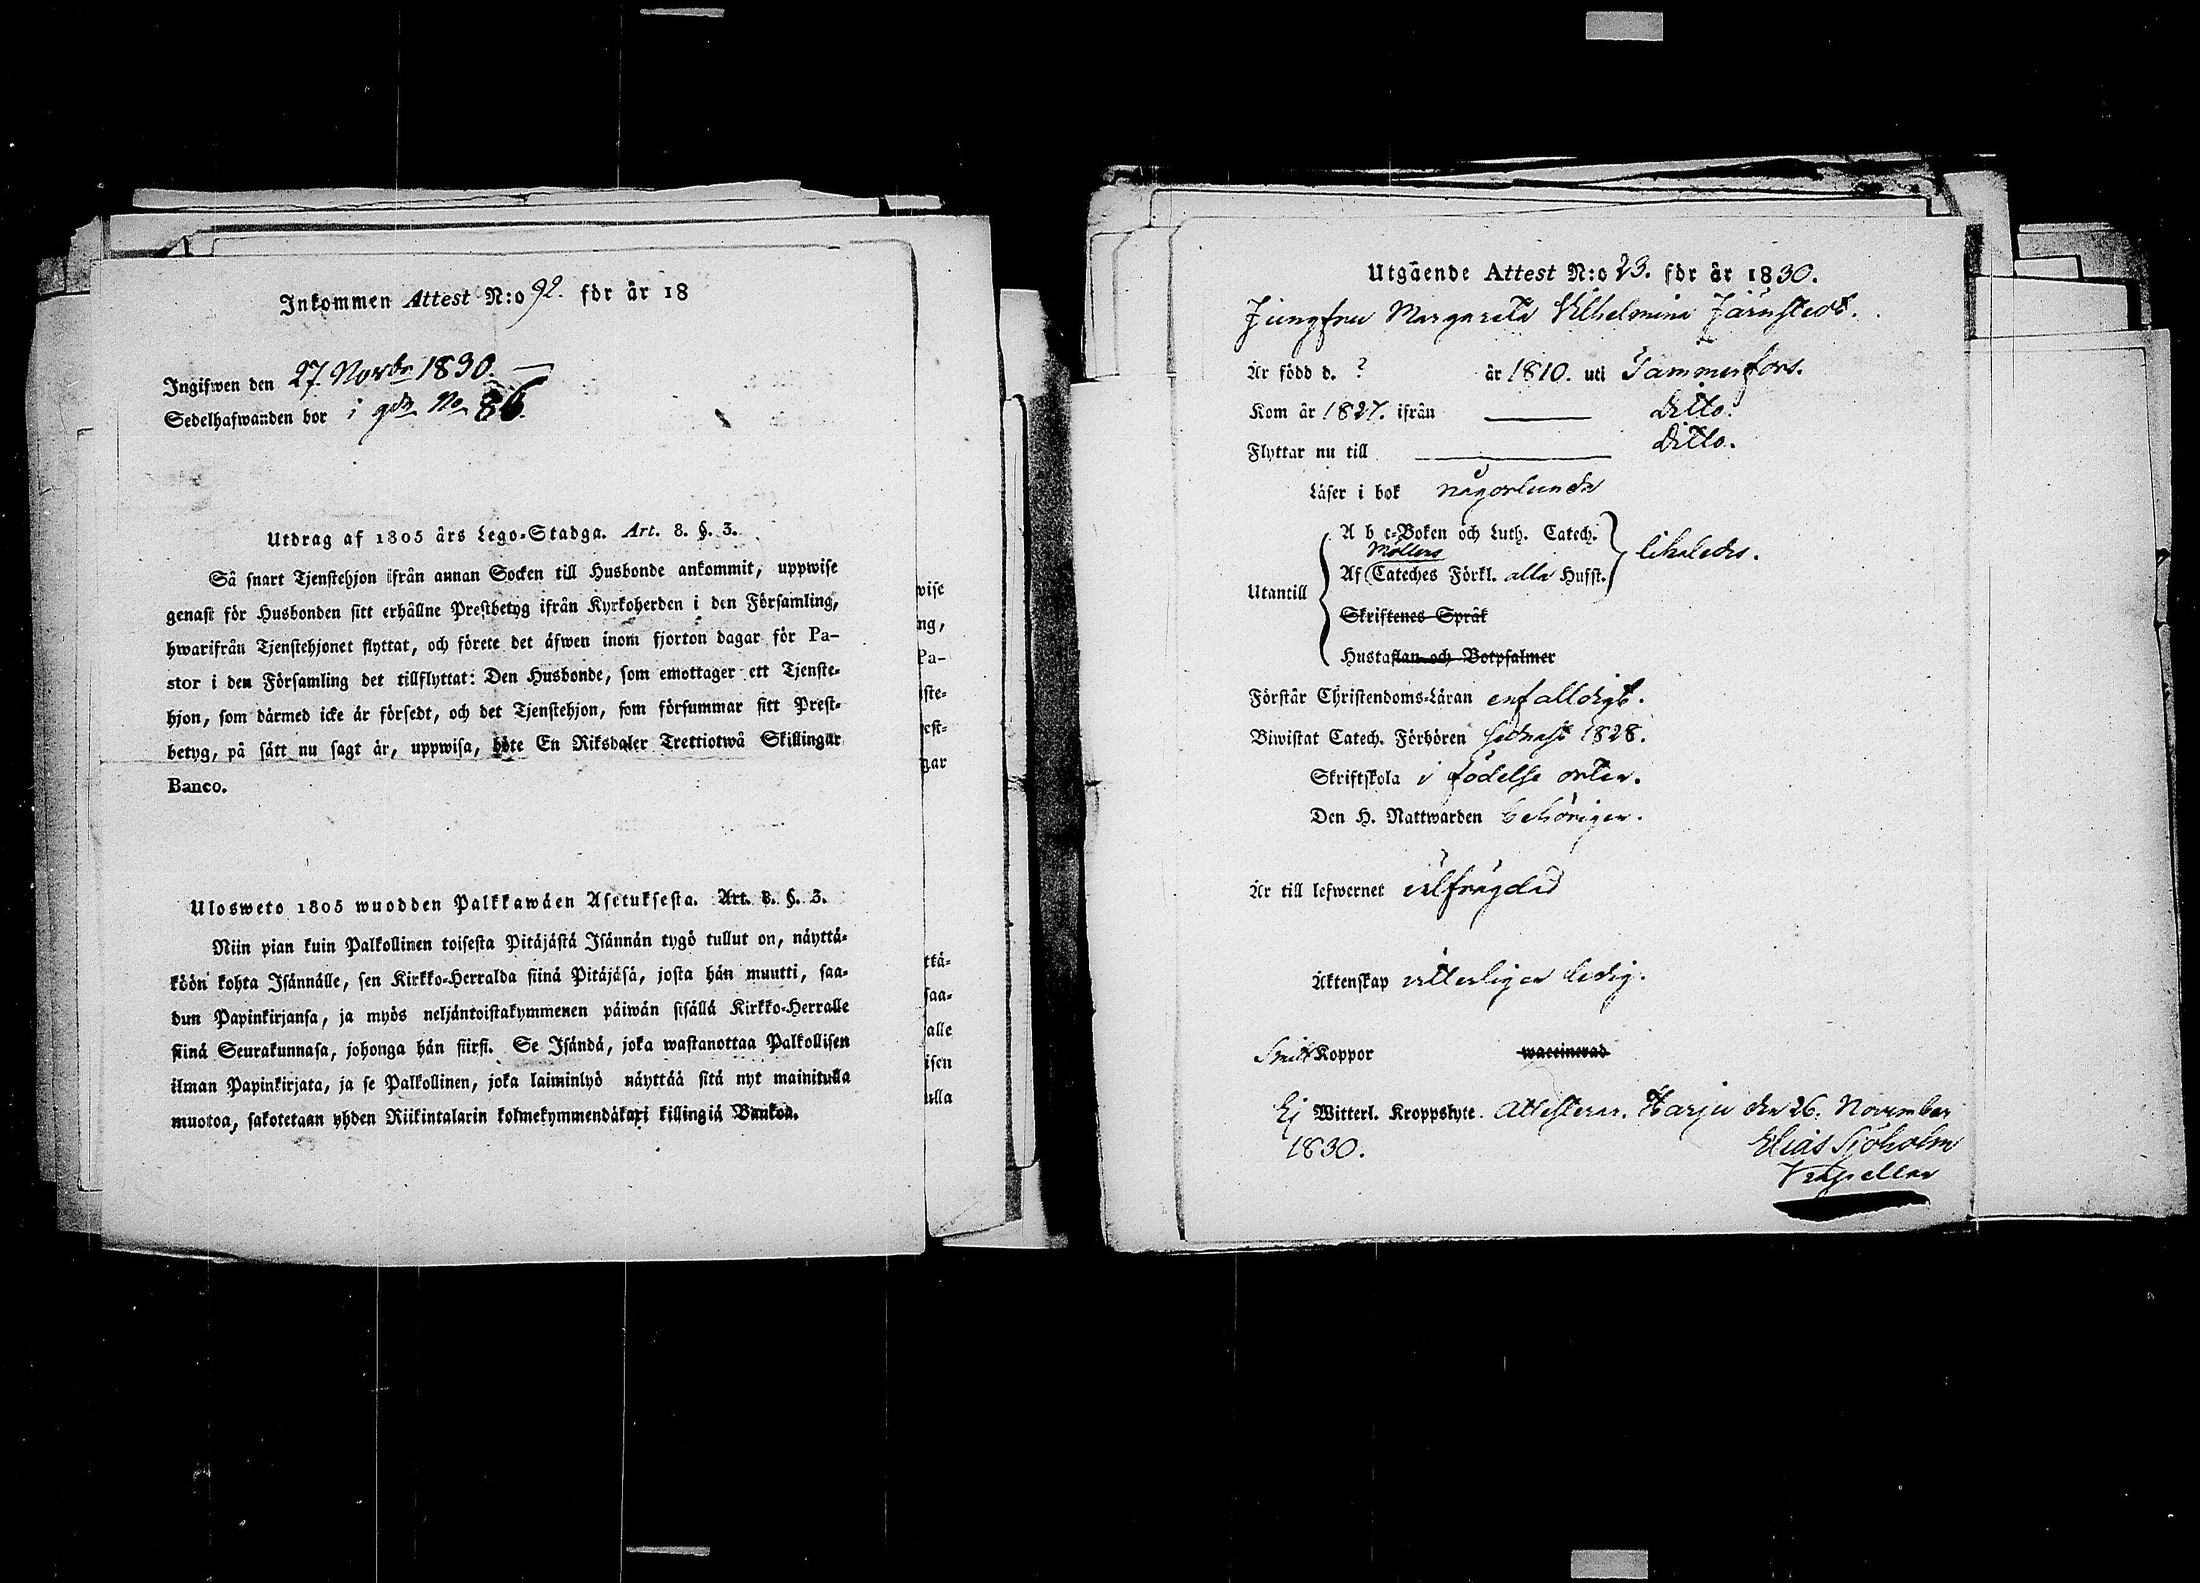 Inkommen Attest N:o 92. för år 18
Ingifwen den 27. Novbr 1830.
Sedelhafwanden bor i gdn No 86.
Utdrag af 1805 års Lego-Stadga. Art. 8. §. 3.
Så snart Tjenstehjon ifrån annan Socken till Husbonde ankommit, uppwise
genast för Husbonden sitt erhållne Prestbetyg ifrån Kyrkoherden i den Församling,
hwarifrån Tjenstehjonet flyttat, och förete det äfwen inom fjorton dagar för Pa-
stor i den Församling det tillflyttat: Den Husbonde, som emottager ett Tjenste-
hjon, som därmed icke är försedt, och det Tjenstehjon, som försummar sitt Prest-
betyg, på sätt nu sagt är, uppwisa, böte En Riksdaler Trettiotwå Skillingar
Banco.
Ulosweto 1805 wuodden Palkkawäen Asetuksesta. Art. 8. §. 3.
Niin pian kuin Palkollinen toisesta Pitäjästä Isännän tygö tullut on, näyttä-
köön kohta Isännälle, sen Kirkko-Herralda siinä Pitäjäsä, josta hän muutti, saa-
dun Papinkirjansa, ja myös neljäntoistakymmenen päiwän sisällä Kirkko-Herralle
siinä Seurakunnasa, johonga hän siirsi. Se Isändä, joka wastanottaa Palkollisen
ilman Papinkirjata, ja se Palkollinen, joka laiminlyö näyttää sitä nyt mainitulla
muotoa, sakotetaan yhden Riikintalarin kolmekymmendäkaxi killingiä Bankoa.
wise
ng,
Pa-
ste-
est-
gar
ttä-
saa-
alle
isen
ulla
Utgående Attest N:o 23. för år 1830.
Jungfru Margareta Vilhelmina Järnstedt.
Är född d. ? år 1810. uti Tammerfors.
Kom år 1827. ifrån Ditto.
Flyttar nu till Ditto.
Läser i bok någorlunda
A b c-Boken och Luth. Catech.
Möllers
likaledes.
Af Cateches Förkl. alla Hufst.
Utantill
Skriftenes Språk
Hustaflan och Botpsalmer
Förstår Christendoms-Läran enfalldigt.
Biwistat Catech. Förhören sednast 1828.
Skriftskola i födelse orten.
Den H. Nattwarden behörigen.
Är till lefwernet välfrägdad
Äktenskap vitterligen ledig.
Smitt Koppor waccinerad
Ej Witterl. Kroppslyte. Attesterar. Harju den 26. November
1830. Elias Sjöholm
Kapellan